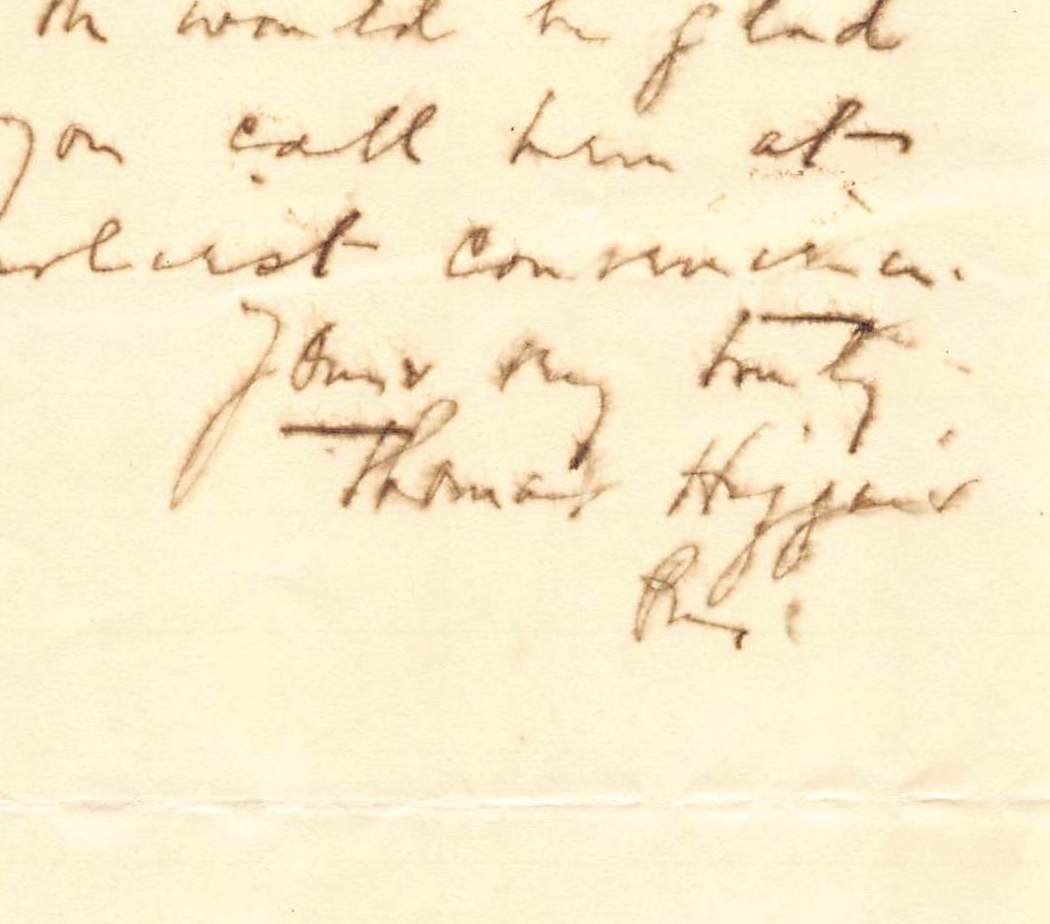 would be glad
you call here at
earliest convenience.
Yours very truly
Thomas Higgins